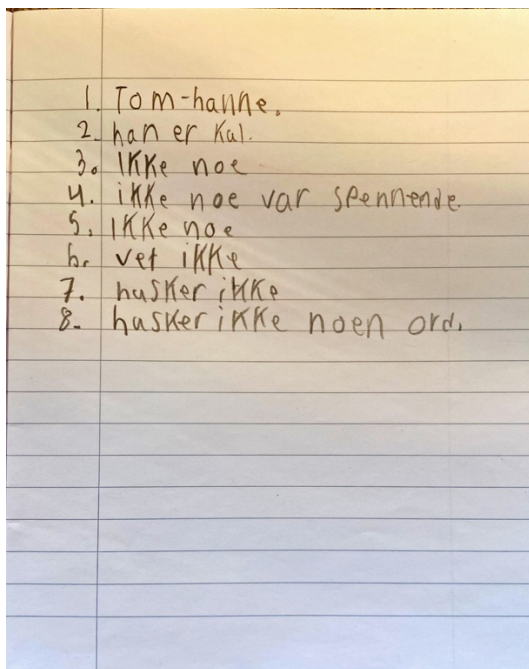 1. Tom-hanne.
2. han er kul.
3. Ikke noe
4. ikke noe var spennende
5. Ikke noe
6. vet ikke
7. husker ikke
8. husker ikke noen ord.